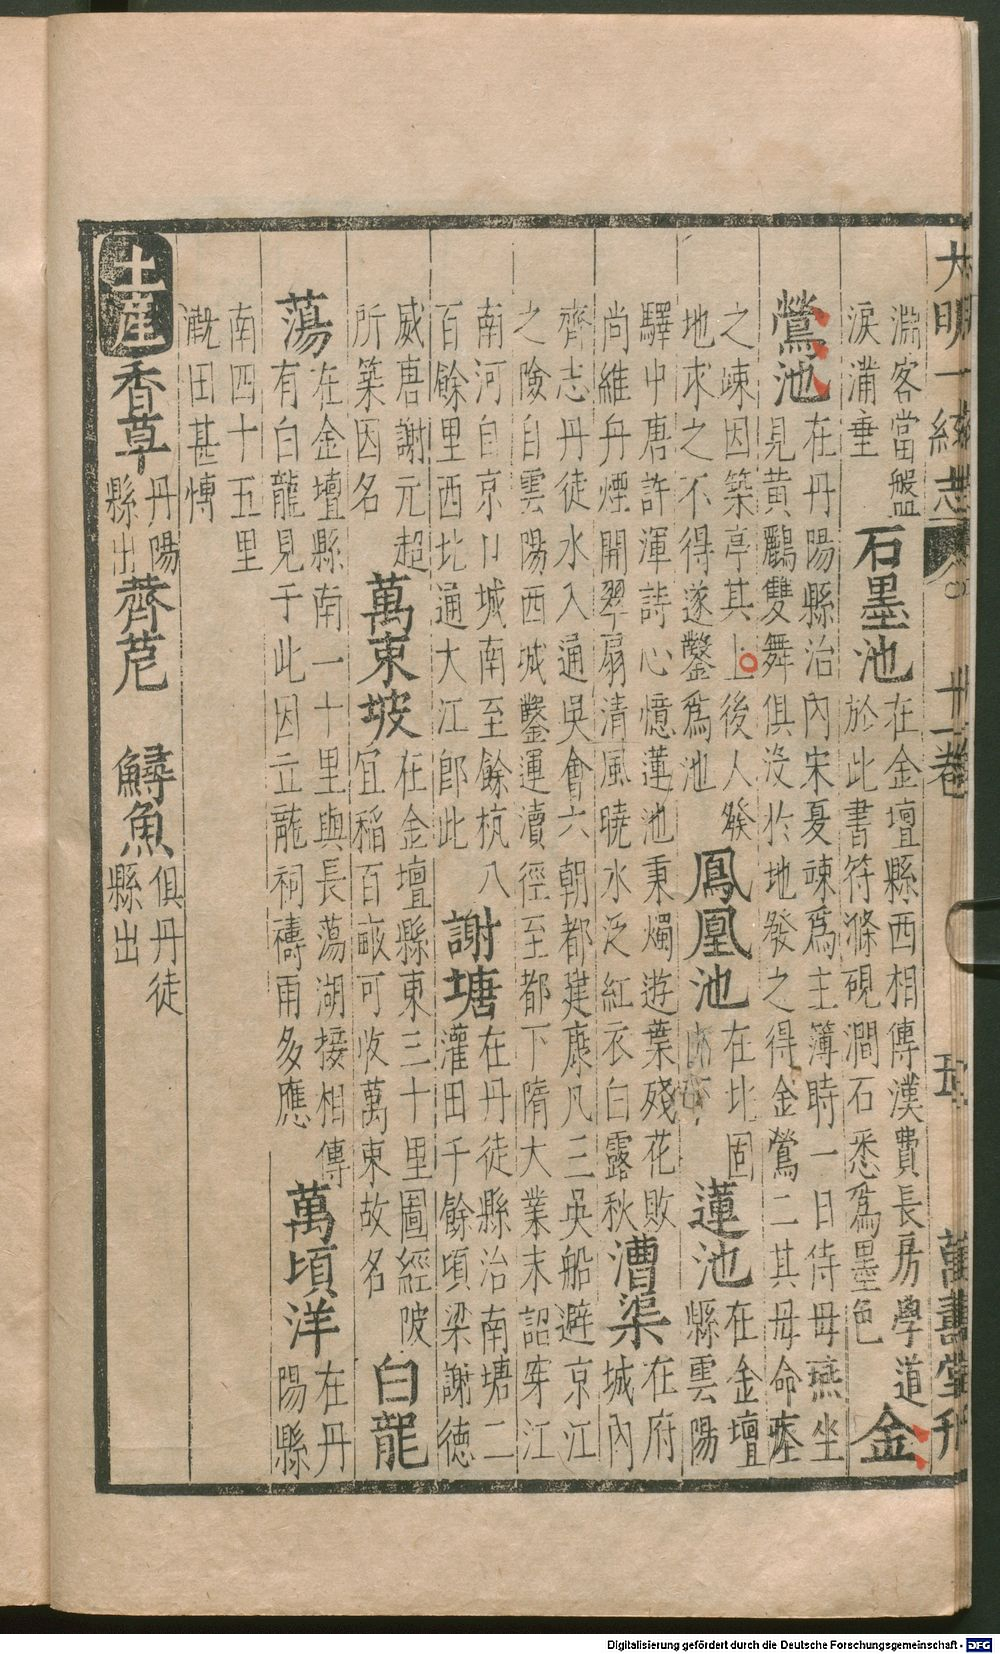 大明一統志 十一卷 五 萬壽堂刊
淵客當盤
淚滿垂
石墨池
在金壇縣西相傳漢費長房學道
於此書符滌硯澗石悉為墨色
金
鶯池
在丹陽縣治內宋夏竦為主簿時一日侍母燕坐
見黃鸝雙舞俱沒於地發之得金鶯二其母命
之竦因築亭其上後人發
地求之不得遂鑿為池
鳳凰池
在北固
蓮池
在金壇
縣雲陽
驛中唐許渾詩心憶蓮池秉燭遊葉殘花敗
尚維舟煙開翠扇清風曉水泛紅衣白露秋
漕渠
在府
城內
齊志丹徒水入通吳會六朝都建康凡三吳船避京江
之險自雲陽西城鑿運瀆徑至都下隋大業末詔穿江
南河自京口城南至餘杭八
百餘里西北通大江即此
謝塘
在丹徒縣治南塘二
灌田千餘頃梁謝德
威唐謝元超
所築因名
萬束坡
在金壇縣東三十里圖經陂
宜稻百畝可收萬束故名
白龍
蕩
在金壇縣南一十里與長蕩湖接相傳
有白龍見于此因立龍祠禱雨多應
萬頃洋
在丹
陽縣
南四十五里
溉田甚慱
土產
香草
丹陽
縣出
薺苨
鱘魚
俱丹徒
縣出
Digitalisierung gefördert durch die Deutsche Forschungsgemeinschaft - DFG